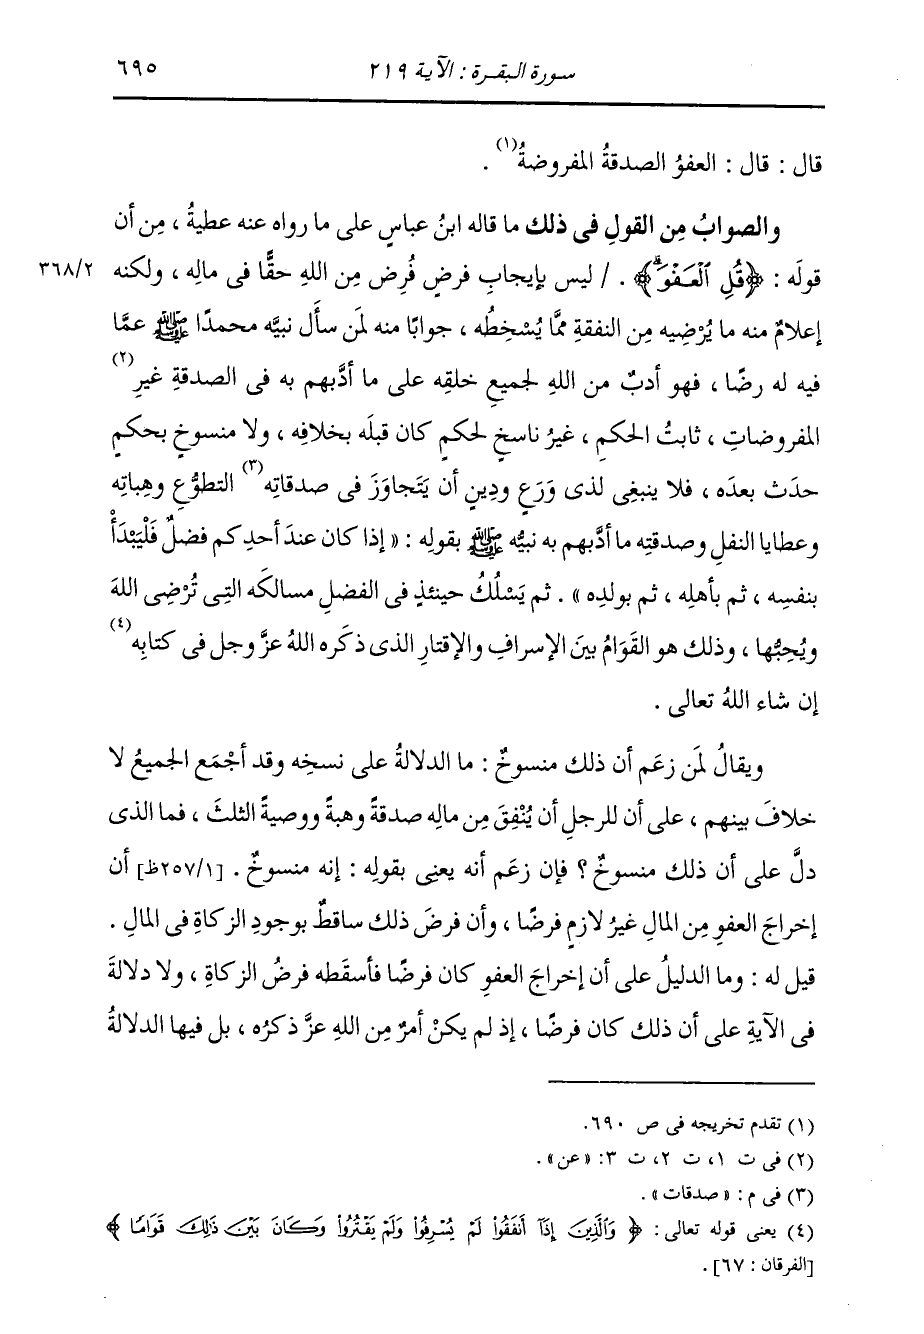 سورة البقرة : الآية ٢١٩ ٦٩٥
قال : قال : العفوُ الصدقةُ المفروضةُ(١) .
والصوابُ مِن القولِ فى ذلك ما قاله ابنُ عباسٍ على ما رواه عنه عطيةُ ، مِن أن
قولَه : ﴿قُلِ ٱلۡعَفۡوَۗ﴾ . / ليس بإيجابِ فرضٍ فُرِض مِن اللهِ حقًّا فى مالِه ، ولكنه ٣٦٨/٢
إعلامٌ منه ما يُرْضِيه مِن النفقةِ ممَّا يُسْخِطُه ، جوابًا منه لمَن سأَل نبيَّه محمدًا ﷺ عمَّا
فيه له رضًا ، فهو أدبٌ من اللهِ لجميعِ خلقِه على ما أدَّبهم به فى الصدقةِ غيرِ(٢)
المفروضاتِ ، ثابتُ الحكمِ ، غيرُ ناسخٍ لحكمٍ كان قبلَه بخلافِه ، ولا منسوخٍ بحكمٍ
حدَث بعدَه ، فلا ينبغِى لذى وَرَعٍ ودِينٍ أن يَتَجاوَزَ فى صدقاتِه(٣) التطوُّعِ وهِباتِه
وعطايا النفلِ وصدقتِه ما أدَّبهم به نبيُّه ﷺ بقولِه : « إذا كان عندَ أحدِكم فضلٌ فَلْيَبْدَأْ
بنفسِه ، ثم بأهلِه ، ثم بولدِه » . ثم يَسْلُكُ حينئذٍ فى الفضلِ مسالكَه التِى تُرْضِى اللهَ
ويُحِبُّها ، وذلك هو القَوَامُ بينَ الإسرافِ والإقتارِ الذى ذكَره اللهُ عزَّ وجل فى كتابِه(٤)
إن شاء اللهُ تعالى .
ويقالُ لمَن زعَم أن ذلك منسوخٌ : ما الدلالةُ على نسخِه وقد أجْمَع الجميعُ لا
خلافَ بينهم ، على أن للرجلِ أن يُنْفِقَ مِن مالِه صدقةً وهبةً ووصيةً الثلثَ ، فما الذى
دلَّ على أن ذلك منسوخٌ ؟ فإن زعَم أنه يعنِى بقولِه : إنه منسوخٌ . [٢٥٧/١ظ] أن
إخراجَ العفوِ مِن المالِ غيرُ لازمٍ فرضًا ، وأن فرضَ ذلك ساقطٌ بوجودِ الزكاةِ فى المالِ .
قيل له : وما الدليلُ على أن إخراجَ العفوِ كان فرضًا فأسقَطه فرضُ الزكاةِ ، ولا دلالةَ
فى الآيةِ على أن ذلك كان فرضًا ، إذ لم يكنْ أمرٌ مِن اللهِ عزَّ ذكرُه ، بل فيها الدلالةُ
(١) تقدم تخريجه فى ص ٦٩٠.
(٢) فى ت ١، ت ٢، ت ٣: «عن» .
(٣) فى م : « صدقات » .
(٤) يعنى قوله تعالى : ﴿ وَٱلَّذِينَ إِذَآ أَنفَقُوا۟ لَمْ يُسْرِفُوا۟ وَلَمْ يَقْتُرُوا۟ وَكَانَ بَيْنَ ذَٰلِكَ قَوَامًا ﴾
[الفرقان : ٦٧] .